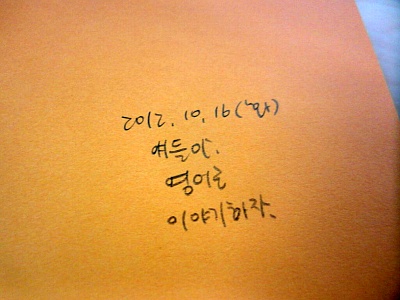 2012. 10. 16 (화)
얘들아.
영어로
이야기하자.